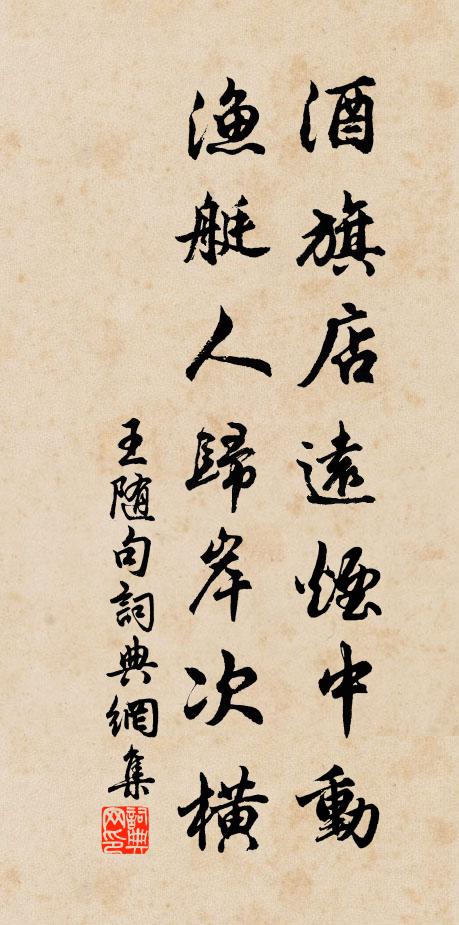 酒旗店遠煙中動
漁艇人歸岸次橫
王随句詞典網集
詞典網印